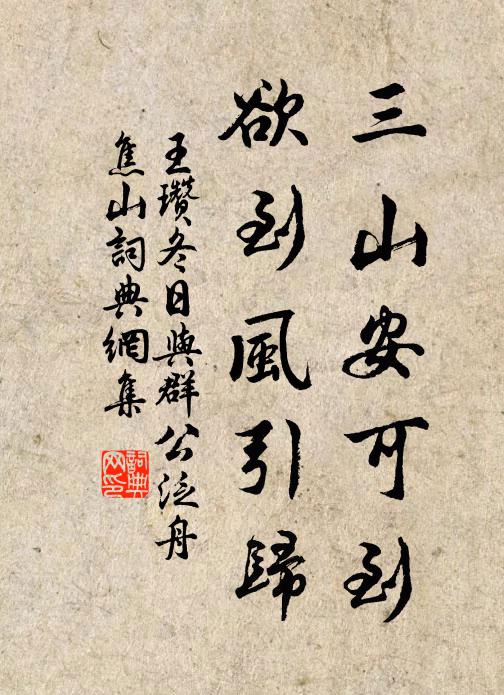 三山安可到
欲到風引歸
王瓚冬日與群公泛舟
焦山詞典網集
詞典
网印